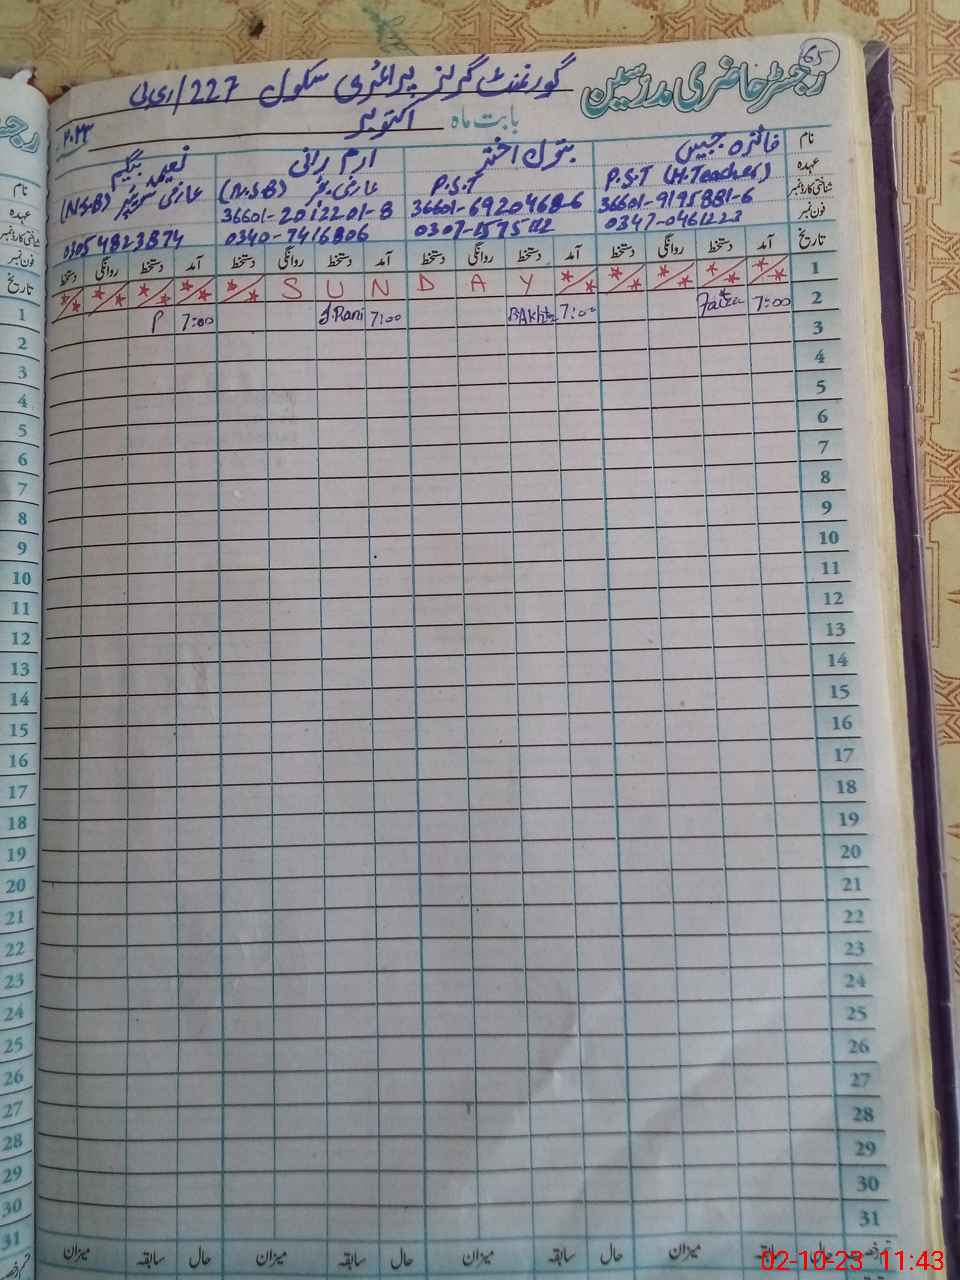 65
رجسٹر حاضری مدرسین
گورنمنٹ گرلز پرائمری سکول 227/ای بی
بابت ماہ اکتوبر ۲۰۲۳
نام فائزہ جبیں بتول اختر ارم رانی نعیمہ بیگم
عہدہ P.S.T (H.Teacher) P.S.T عارضی ٹیچر (N.S.B) عارضی سویپر (N.S.B)
شناختی کارڈ نمبر 36601-9195881-6 36601-6920468-6 36601-2012201-8
فون نمبر 0347-0461223 0340-7416806 03054823874
تاریخ آمد دستخط روانگی دستخط آمد دستخط روانگی دستخط آمد دستخط روانگی دستخط آمد دستخط روانگی دستخط
1 SUNDAY
2 7:00 Faiza 7:00 BAkhtar 7:00 I.Rani 7:00 P
3
4
5
6
7
8
9
10
11
12
13
14
15
16
17
18
19
20
21
22
23
24
25
26
27
28
29
30
31
حال سابقہ میزان حال سابقہ میزان حال سابقہ میزان حال سابقہ میزان
نام
عہدہ
شناختی کارڈ نمبر
فون نمبر
تاریخ
1
2
3
4
5
6
7
8
9
10
11
12
13
14
15
16
17
18
19
20
21
22
23
24
25
26
27
28
29
30
31
02-10-23 11:43